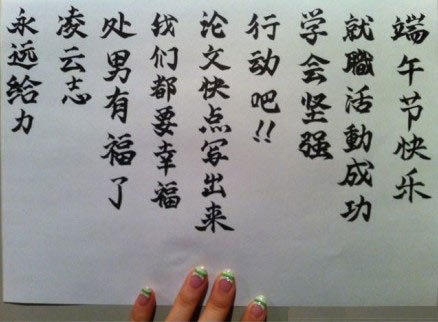 端午节快乐
就職活動成功
学会坚强
行动吧!!
论文快点写出来
我们都要幸福
处男有福了
凌云志
永远给力